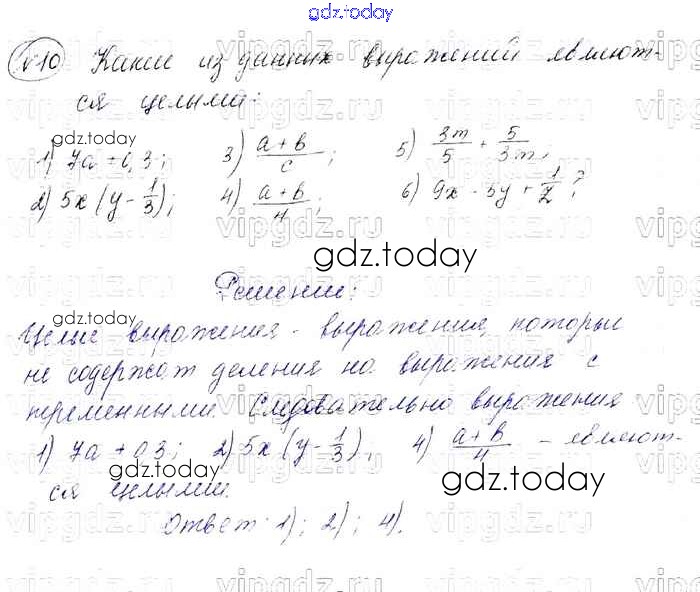 gdz.today
gdz.today
№10 Какие из данных выражений являют-
ся целыми:
1) 7a + 0,3; 3) \frac{a+b}{c}; 5) \frac{3m}{5} + \frac{5}{3m};
2) 5x(y - \frac{1}{3}); 4) \frac{a+b}{4}; 6) 9x - 5y + \frac{1}{z}?
gdz.today
gdz.today
Решение:
Целые выражения - выражения, которые
не содержат деления на выражения с
переменными. Следовательно выражения
1) 7a + 0,3; 2) 5x(y - \frac{1}{3}), 4) \frac{a+b}{4} - являют-
ся целыми.
gdz.today
gdz.today
Ответ: 1); 2); 4).